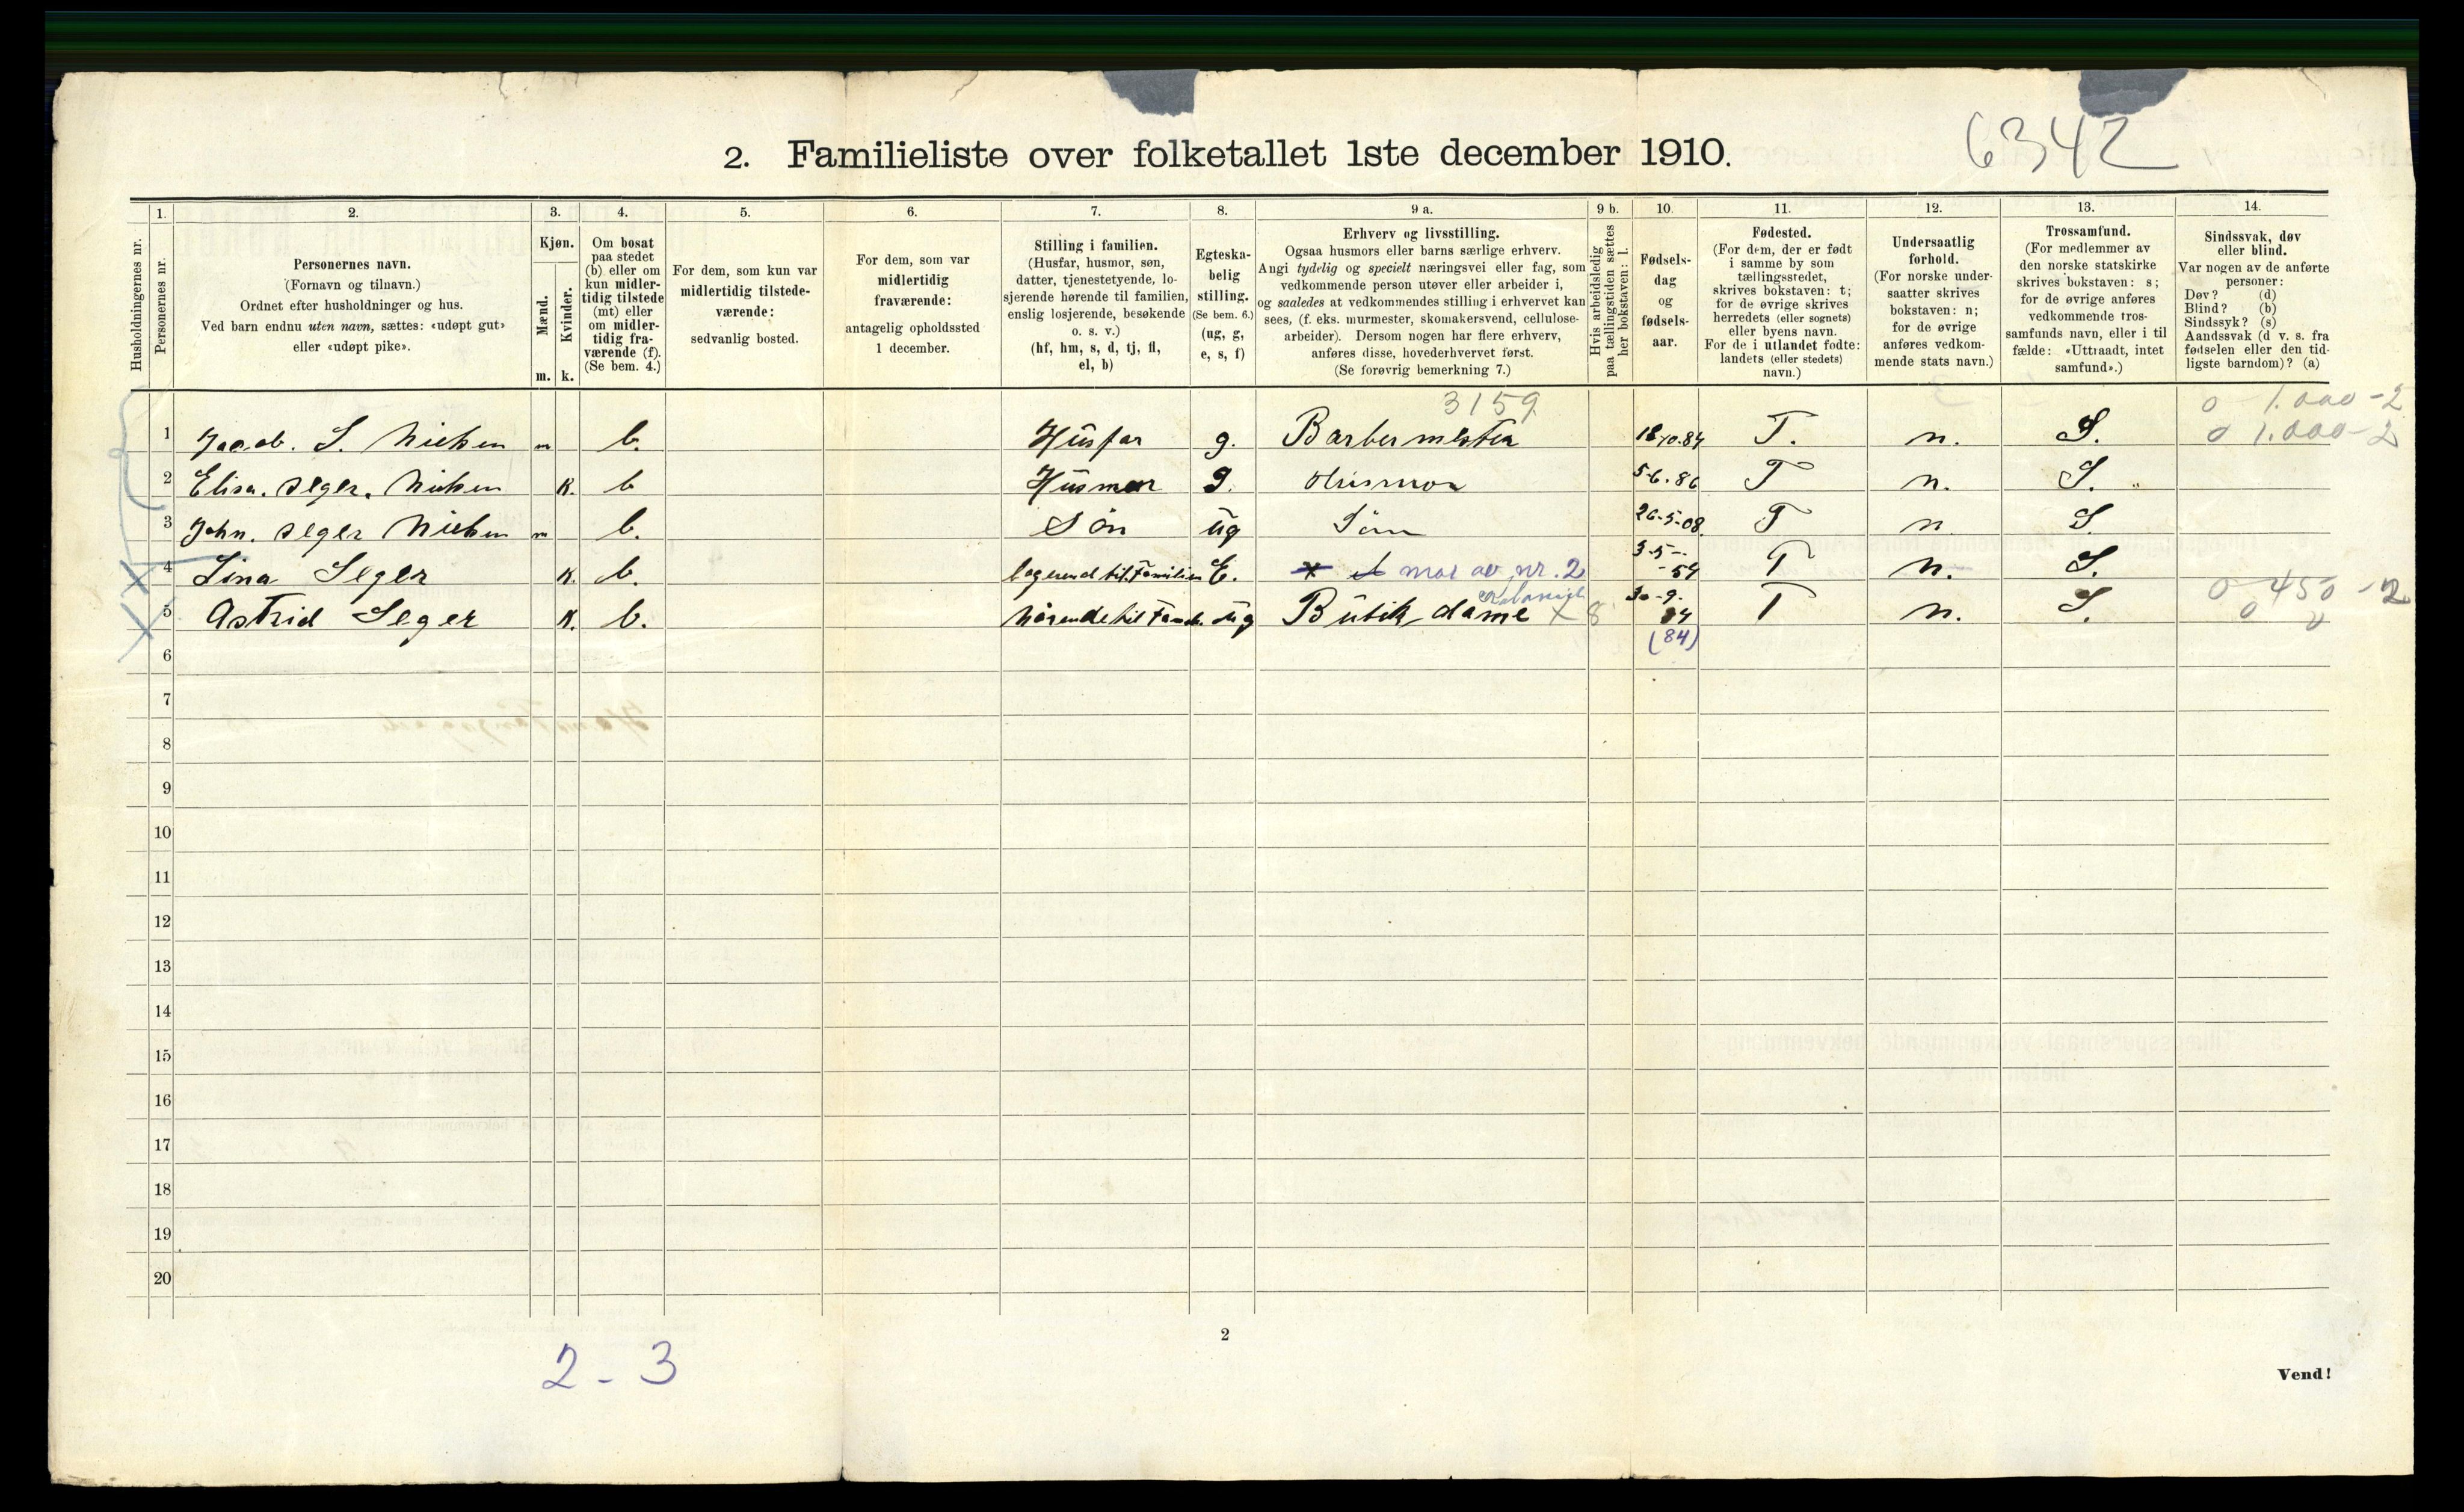 6342
2. Familieliste over folketallet 1ste december 1910.
Husholdningernes nr.
1.
Personernes nr.
2.
Personernes navn.
(Fornavn og tilnavn.)
Ordnet efter husholdninger og hus.
Ved barn endnu uten navn, sættes: «udøpt gut»
eller «udøpt pike».
3.
Kjøn.
Mænd.
Kvinder.
m. k.
4.
Om bosat
paa stedet
(b) eller om
kun midler-
tidig tilstede
(mt) eller
om midler-
tidig fra-
værende (f).
(Se bem. 4.)
5.
For dem, som kun var
midlertidig tilstede-
værende:
sedvanlig bosted.
6.
For dem, som var
midlertidig
fraværende:
antagelig opholdssted
1 december.
7.
Stilling i familien.
(Husfar, husmor, søn,
datter, tjenestetyende, lo-
sjerende hørende til familien,
enslig losjerende, besøkende
o. s. v.)
(hf, hm, s, d, tj, fl,
el, b)
8.
Egteska-
belig
stilling.
(Se bem. 6.)
(ug, g,
e, s, f)
9 a.
Erhverv og livsstilling.
Ogsaa husmors eller barns særlige erhverv.
Angi tydelig og specielt næringsvei eller fag, som
vedkommende person utøver eller arbeider i,
og saaledes at vedkommendes stilling i erhvervet kan
sees, (f. eks. murmester, skomakersvend, cellulose-
arbeider). Dersom nogen har flere erhverv,
anføres disse, hovederhvervet først.
(Se forøvrig bemerkning 7.)
9 b.
Hvis arbeidsledig
paa tællingstiden sættes
her bokstaven: l.
10.
Fødsels-
dag
og
fødsels-
aar.
11.
Fødested.
(For dem, der er født
i samme by som
tællingsstedet,
skrives bokstaven: t;
for de øvrige skrives
herredets (eller sognets)
eller byens navn.
For de i utlandet fødte:
landets (eller stedets)
navn.)
12.
Undersaatlig
forhold.
(For norske under-
saatter skrives
bokstaven: n;
for de øvrige
anføres vedkom-
mende stats navn.)
13.
Trossamfund.
(For medlemmer av
den norske statskirke
skrives bokstaven: s;
for de øvrige anføres
vedkommende tros-
samfunds navn, eller i til
fælde: «Uttraadt, intet
samfund».)
14.
Sindssvak, døv
eller blind.
Var nogen av de anførte
personer:
Døv? (d)
Blind? (b)
Sindssyk? (s)
Aandssvak (d v. s. fra
fødselen eller den tid-
ligste barndom)? (a)
3159 0 1.000-2
1 Jacob. S. Nielsen m b. Husfar g. Barbermester 18/10.84 T. n. S. 0 1.000-2
2 Elisa. Seger. Nielsen K. b Husmor g. Husmor 5-6.86 T n. S.
3 John. Seger Nielsen m b. Sön ug Sön 26-5-08. T n S
4 Lina Seger K. b. logerend til Familien E. mor av nr. 2 3-5-54 T n. S.
5 Astrid Seger K. b. hørende til Famil. Ug Butik dame x 8 30-9. 84 T n. S. 0 450-2
(84)
6
7
8
9
10
11
12
13
14
15
16
17
18
19
20
2
2-3
Vend!